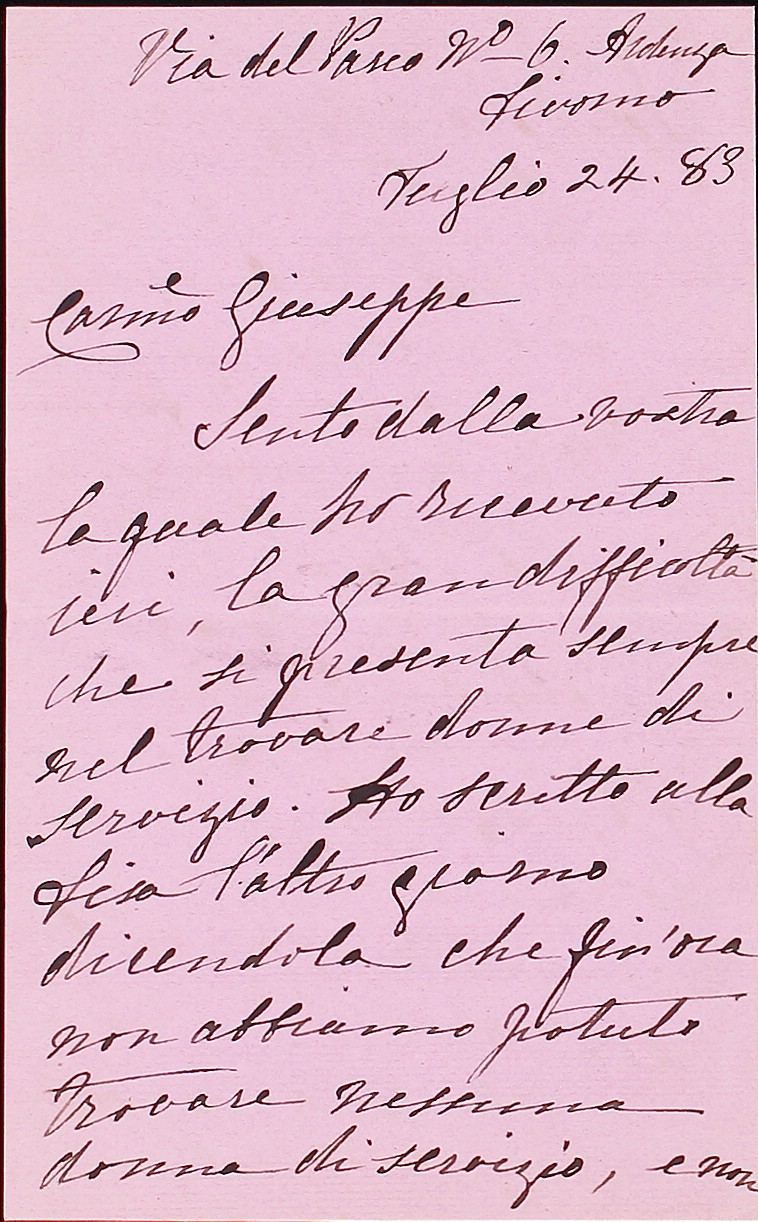 Via del Parco Nº 6. Ardenza
Livorno
Luglio 24. 83
Carmº Giuseppe
Sento dalla vostra
la quale ho ricevuto
ieri, la gran difficoltà
che si presenta sempre
nel trovare donne di
servizio. Ho scritto alla
Lisa l'altro giorno
dicendola che fin'ora
non abbiamo potuto
trovare nessuna
donna di servizio, e non